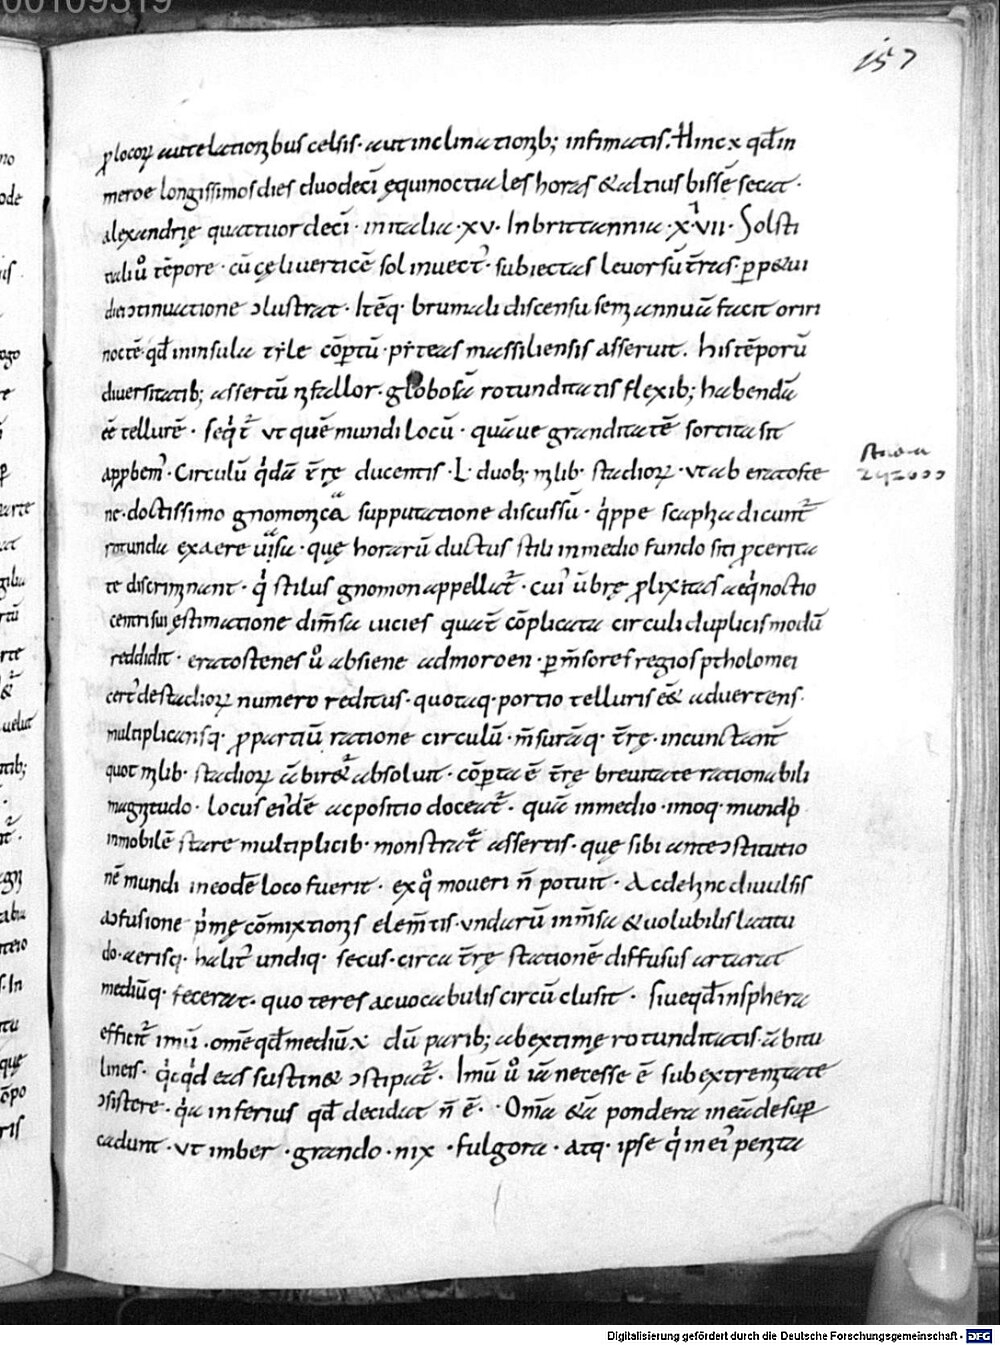 00109319
157
ꝓ locoꝝ aut elationibus celsis · aut inclinationib; infimatis. Hinc ÷ qđ in
meroe longissimos dies duodecī ęquinoctiales horas & altius bissē secat ·
alexandrię quattuordecī · in italia · xv · In brittannia · xvii · Solsti
tiali ů tēpore · cū cęli verticē sol inuect᷒ · subiectas leuorsū t̄ras · ꝑpetui
diei ↄtinuatione ↄlustrat · Itēq· brumali discensu semiannuā facit oriri
noctē · qđ in insula tyle cōptū · pyteas massiliensis asseruit . his tēporū
diuersitatib; assertū ni fallor · globosā rotunditatis flexib; habendā
ēē tellurē · seqt᷑ ut quē mundi locū · quāue granditatē sortita sit
approbem᷒ · Circulū qdā t̄rę ducentis · L · duob; milib· stadioꝝ · ut ab eratoste
ne · doctissimo gnomonica supputatione discussū · qppe scaphia dicunt᷑
rotunda ex aere uasa · quę horarū ductus stili in medio fundo siti ꝓcerita
te discriminant · q stilus gnomon appellat᷑ · cui᷒ ūbrę ꝓlixitas aeqnoctio
centri sui ęstimatione dim̄sa uicies quat̄ cōplicata circuli duplicis modū
reddidit · eratostenes ů a bsiene ad moroen · ꝑ m̄sores regios ptholomei
cert᷒ de stadioꝝ numero reditus · quotaq· portio telluris eēt aduertens ·
multiplicansq· ꝓ partiū ratione circulū · m̄surāq· t̄rę · incunctant̄
quot milib· stadioꝝ ābiret᷑ absoluit · cōpta ē t̄rę breuitate rationabili
magnitudo · locus ei᷒dē ac positio doceat᷑ · quā in medio · imoq· mundo
inmobilē stare multiplicib· monstrat᷑ assertis · quę sibi ante ↄstitutio
nē mundi in eodē loco fuerit · ex q̊ moueri n̄ potuit · Ac dehinc diuulsis
a ↄfusione pmę cōmixtionis elem̄tis · undarū inm̄sa & uolubilis latitu
do · aerisq· halit᷒ undiq· secus · circa t̄rę stationē diffusus artarat
mediūq· fecerat · quo teres ac uocabulis circū clusit · siue qđ in sphera
efficit᷑ imū . omē qđ mediū ÷ dū parib; ab extimę rotunditatis · ābitu
lineis · qcqd eas sustinet ↄstipat᷑ · Imū ů iā necesse ē sub extremitate
ↄsistere · qa inferius qđ decidat n̄ ē · Om̄a etiā pondera in eā desuꝑ
cadunt · ut imber · grando · nix · fulgora · atq· ipse q in ei᷒ penita
252000
Digitalisierung gefördert durch die Deutsche Forschungsgemeinschaft - DFG